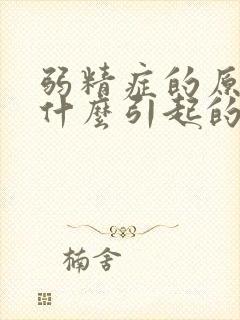 弱精症的原
什麼引起的
楠舍